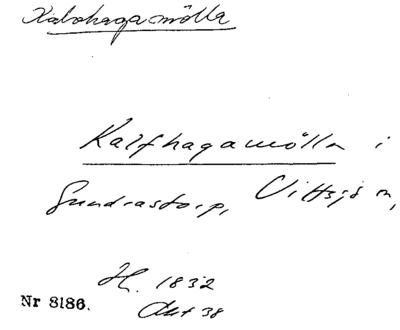 Kalvhagamölla
Kalfhagamölla i
Gundrastorp, Vittsjö sn,
H. 1832
Akt 38
Nr 8186.